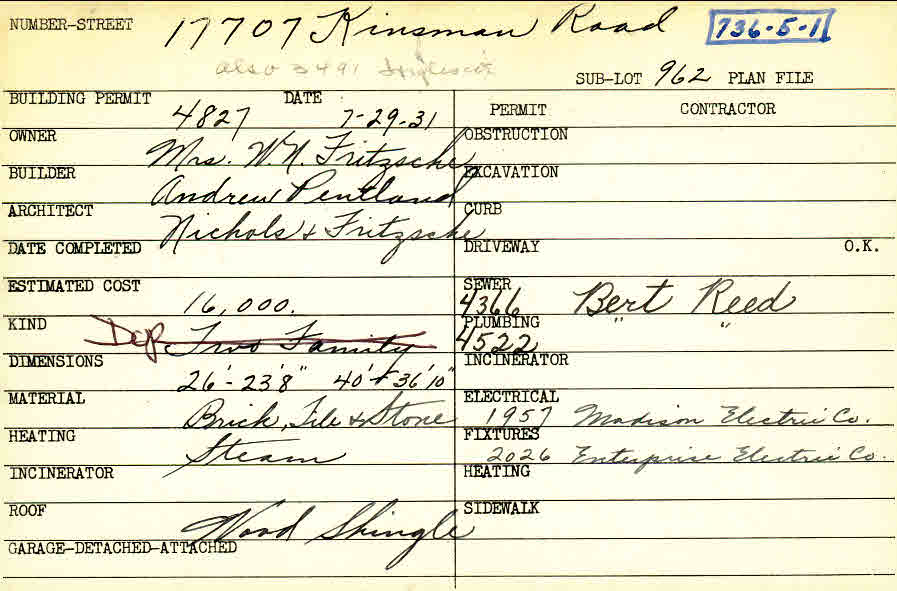 NUMBER-STREET 17707 Kinsman Road 736-5-1
also 3491 Ingleside
SUB-LOT 962 PLAN FILE
BUILDING PERMIT 4827 DATE 7-29-31
PERMIT CONTRACTOR
OWNER Mrs. W. N. Fritzsche
OBSTRUCTION
BUILDER Andrew Pentland
EXCAVATION
ARCHITECT Nichols & Fritzsche
CURB
DATE COMPLETED
DRIVEWAY O.K.
ESTIMATED COST 16,000.
SEWER 4366 Bert Reed
KIND Two Family
PLUMBING 4522 " "
DIMENSIONS 26'-23'8" 40'+36'10"
INCINERATOR
MATERIAL Brick, Tile & Stone
ELECTRICAL 1957 Madison Electric Co.
HEATING Steam
FIXTURES 2026 Enterprise Electric Co.
INCINERATOR
HEATING
ROOF Wood Shingle
SIDEWALK
GARAGE-DETACHED-ATTACHED